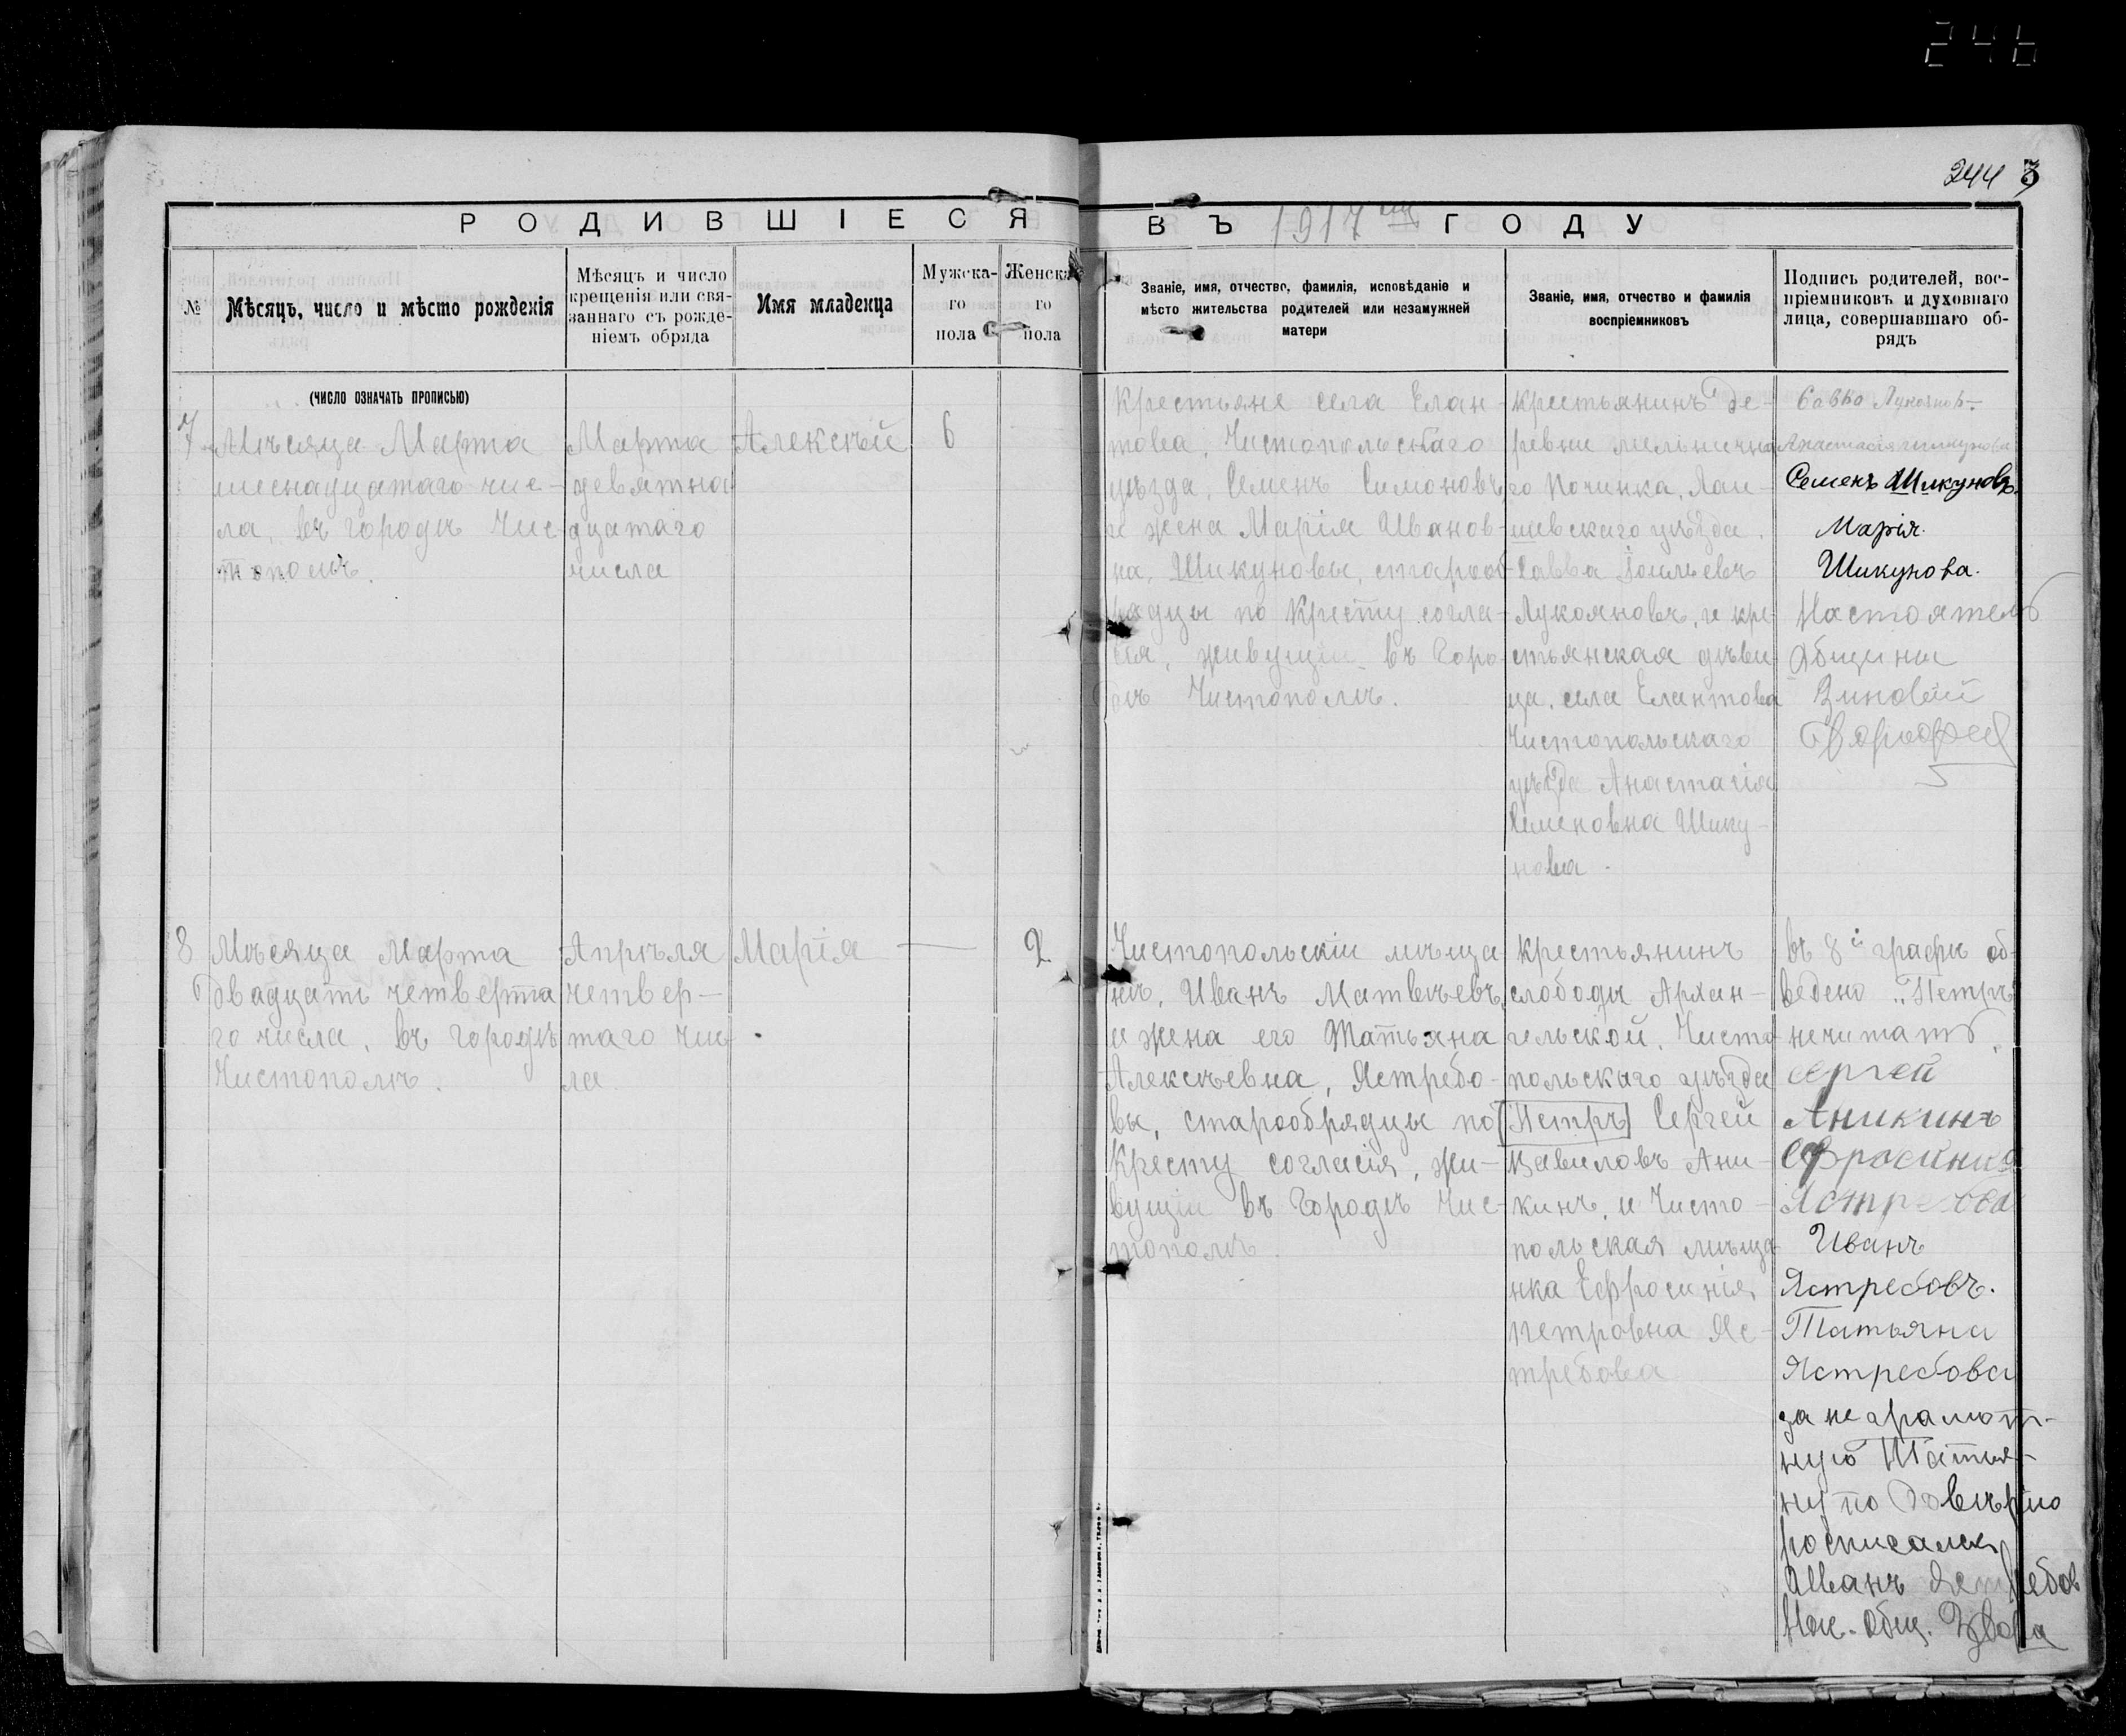 246
244 3
РОДИВШІЕСЯ
ВЪ 1917 ГОДУ
№
Мѣсяцъ, число и мѣсто рожденія
Мѣсяцъ и число
крещенія или свя-
заннаго съ рожде-
ніемъ обряда
Имя младенца
Мужска-
го
пола
Женска
го
пола
Званіе, имя, отчество, фамилія, исповѣданіе и
мѣсто жительства родителей или незамужней
матери
Званіе, имя, отчество и фамилія
воспріемниковъ
Подпись родителей, вос-
пріемниковъ и духовнаго
лица, совершавшаго об-
рядъ
(ЧИСЛО ОЗНАЧАТЬ ПРОПИСЬЮ)
7
Мѣсяца Марта
шеснадцатаго чис-
ла, въ городѣ Чис-
тополѣ.
Марта
девятна
дцатаго
числа
Алексѣй
6
Крестьяне села Елан-
това, Чистопольскаго
уѣзда, Семенъ Симоновъ
и жена Марія Иванов-
на, Шикуновы, старооб
рядцы по Кресту согла-
сія, живущіи въ Горо-
дѣ Чистополѣ.
Крестьянинъ де-
ревни мельнична
го Починка, Лаи-
шевскаго уѣзда,
Савва
Лукояновъ, и кре-
стьянская дѣви-
ца, села Елантова
Чистопольскаго
уѣзда Анастасія
Семеновна Шику-
нова.
Савва
Анастасія Шикунова
Семенъ Шикуновъ.
Марія.
Шикунова.
Настоятель
Общины
Зиновій
8
Мѣсяца Марта
двадцать четверта
го числа, въ городѣ
Чистополѣ.
Апрѣля
четвер-
таго чис-
ла
Марія
—
2
Чистопольскіи мѣща
нѣ, Иванъ Матвѣевъ,
и жена его Татьяна
Алексѣевна, Ястребо-
вы, старообрядцы по
Кресту согласія, жи-
вущіи въ Городѣ Чис-
тополѣ.
Крестьянинъ
слободы Архан-
гельской, Чисто-
польскаго уѣзда
[Петръ] Сергей
Вавиловъ Ани-
кинъ, и Чисто-
польская мѣща-
нка Ефросинія
Петровна Яс-
требова
въ 8й графѣ об-
ведено „Петръ
нечитать.
Сергей
Аникинъ
Ефросинія
Ястребова
Иванъ
Ястребовъ.
Татьяна
Ястребова
за не грамот-
ную Татья-
ну по довѣрію
росписался
Иванъ Ястребов
Нас. Общ.